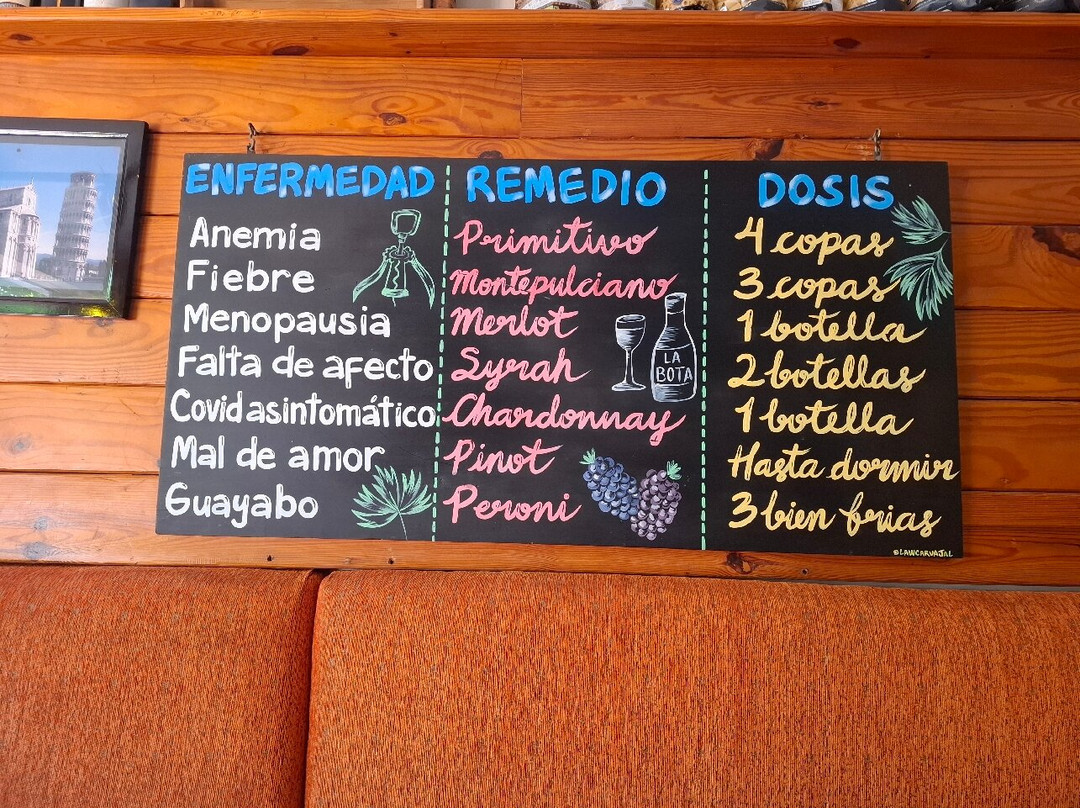 ENFERMEDAD REMEDIO DOSIS
Anemia Primitivo 4 copas
Fiebre Montepulciano 3 copas
Menopausia Merlot 1 botella
Falta de afecto Syrah 2 botellas
Covid asintomático Chardonnay 1 botella
Mal de amor Pinot Hasta dormir
Guayabo Peroni 3 bien frias
LA
BOTA
@LAWCARVAJAL